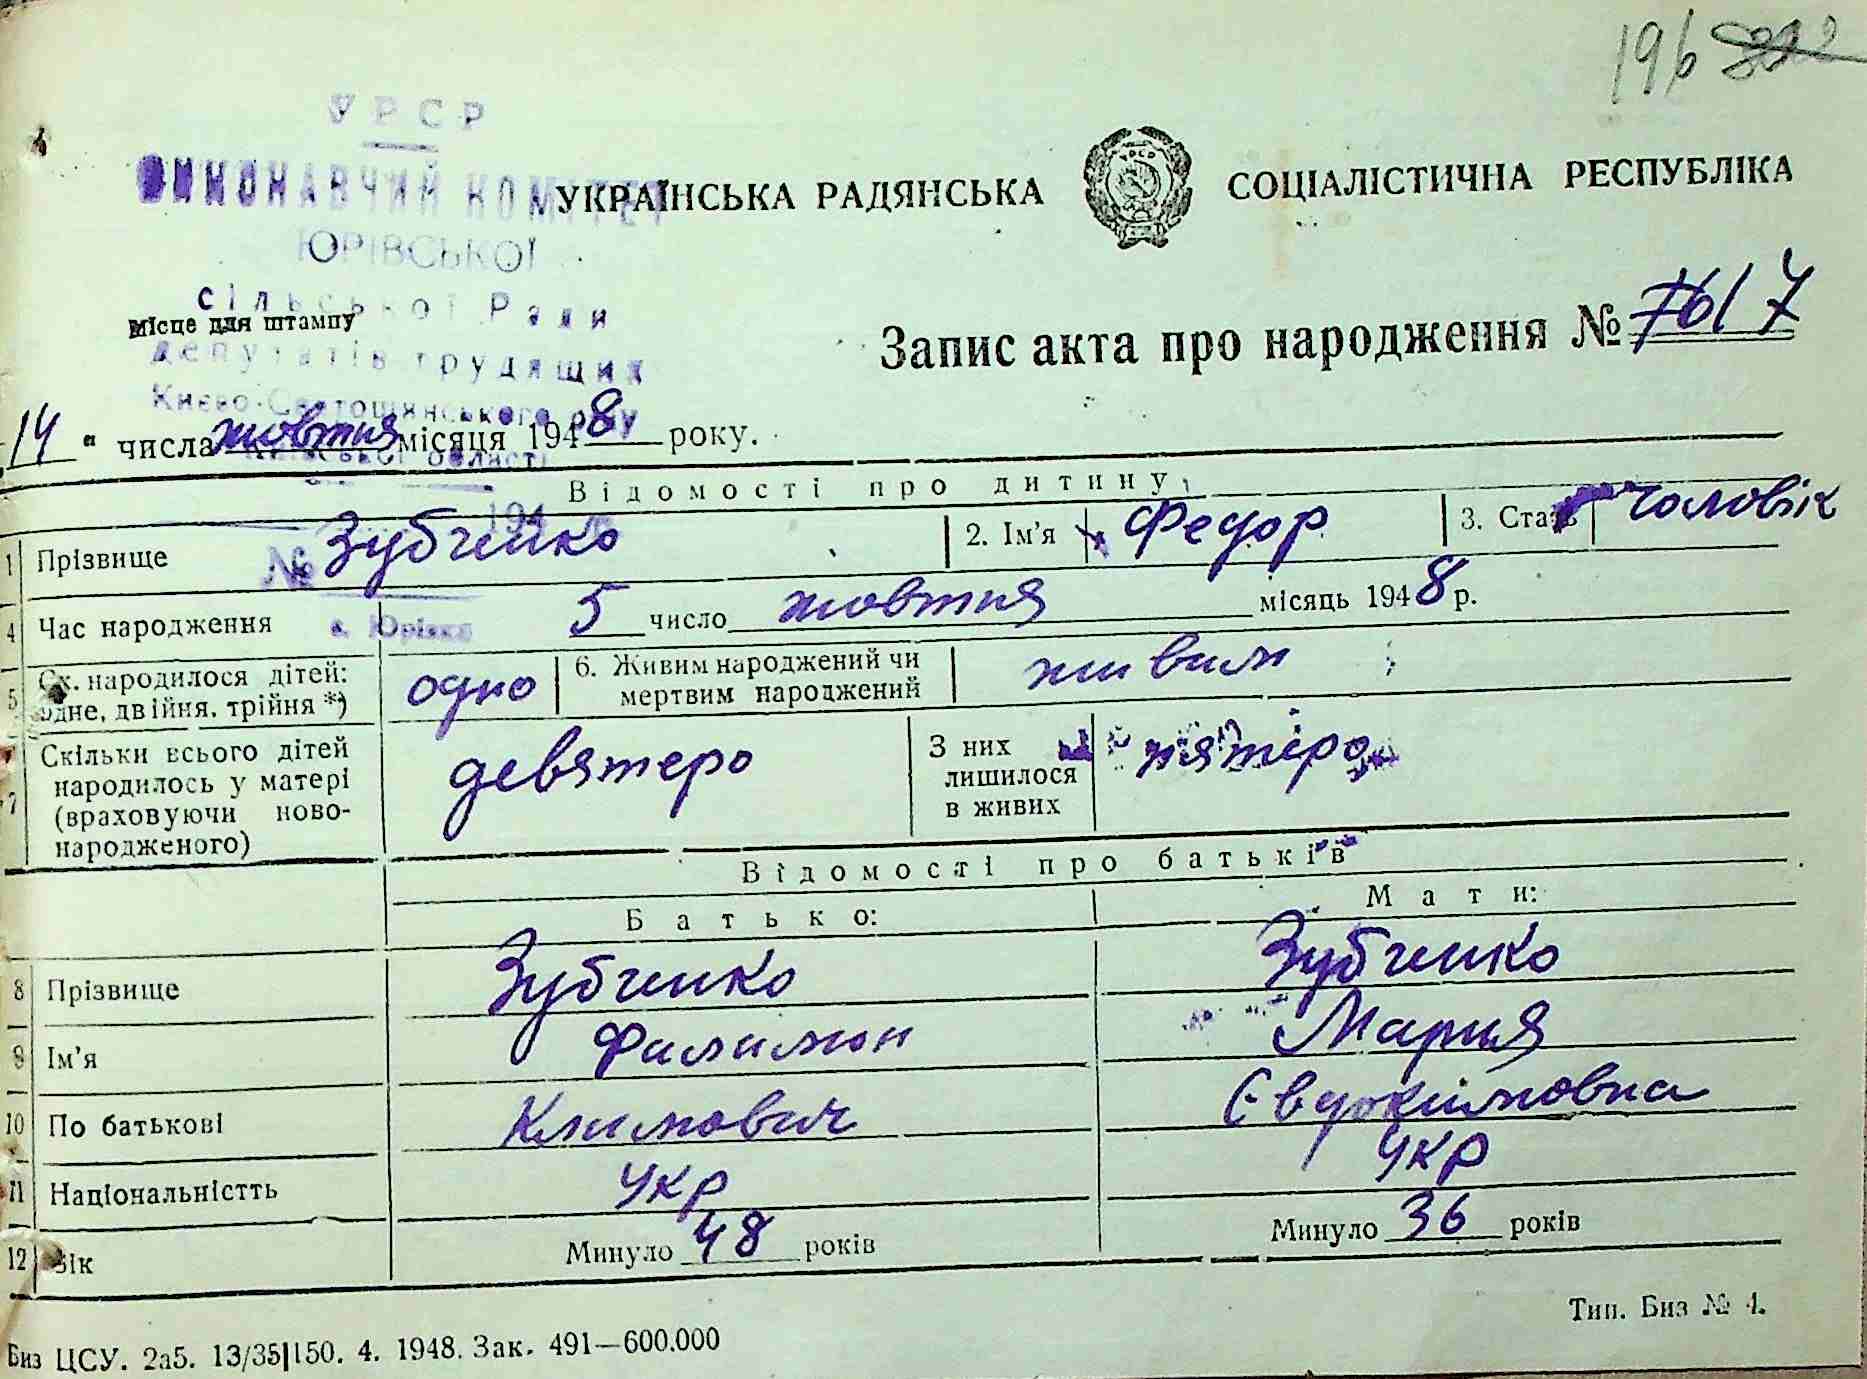 196
УРСР
ВИКОНАВЧИЙ КОМІТЕТ
УКРАЇНСЬКА РАДЯНСЬКА СОЦІАЛІСТИЧНА РЕСПУБЛІКА
ЮРІВСЬКОЇ
сільської Ради
місце для штампу
депутатів трудящих
Запис акта про народження № 7617
Києво-Святошинського р-ну
14 " числа жовтня місяця 1948 року.
Київської області
Відомості про дитину
194
1 Прізвище Зубченко 2. Ім'я Федор 3. Стать чоловік
№
4 Час народження 5 число жовтня місяць 1948 р.
с. Юрівка
5 Ск. народилося дітей: одно 6. Живим народжений чи живим
одне, двійня, трійня *) мертвим народжений
7 Скільки всього дітей девятеро З них пятіро
народилось у матері лишилося
(враховуючи ново- в живих
народженого)
Відомості про батьків
Батько: Мати:
8 Прізвище Зубченко Зубченко
9 Ім'я Филимон Мария
10 По батькові Климович Євдокимовна
11 Національністть Укр Укр
12 Вік Минуло 48 років Минуло 36 років
Тип. Биз № 4.
Биз ЦСУ. 2а5. 13/35|150. 4. 1948. Зак. 491—600.000